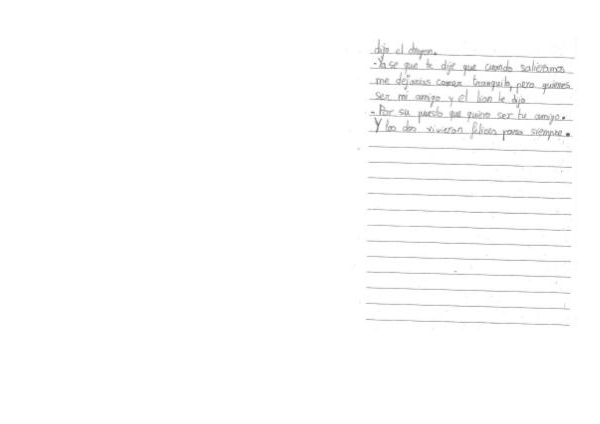 dijo el dragon.
-Ya se que te dije que cuando salieramos
me dejarias comer tranquilo, pero quieres
ser mi amigo y el leon le dijo
-Por su puesto que quiero ser tu amigo.
Y los dos vivieron felices para siempre.